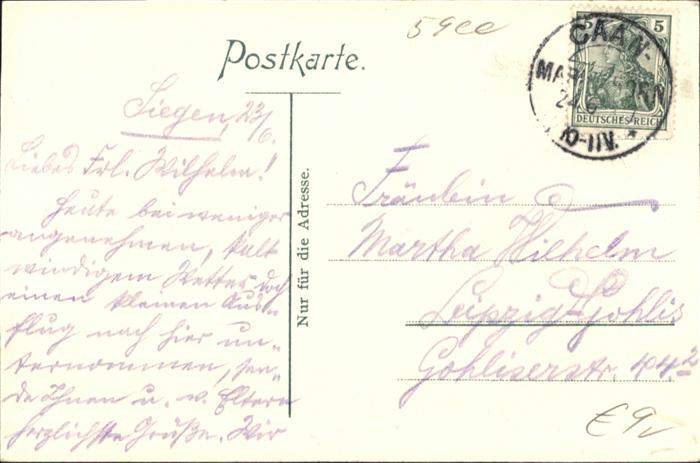 59ee
Postkarte.
CAAN-
MA
24 6
10-11V.
5
DEUTSCHES REICH
Siegen, 23/6.
Liebes Frl. Wilhelm!
Heute bei weniger
angenehmen, kalt
windigem Wetter doch
einen kleinen Aus-
flug nach hier un-
ternommen, sen-
de Ihnen u. v. Eltern
herzlichste Grüße. Wir
Nur für die Adresse.
Fräulein
Martha Wilhelm
Leipzig-Gohlis
Gohliserstr. 44.2
€9,-